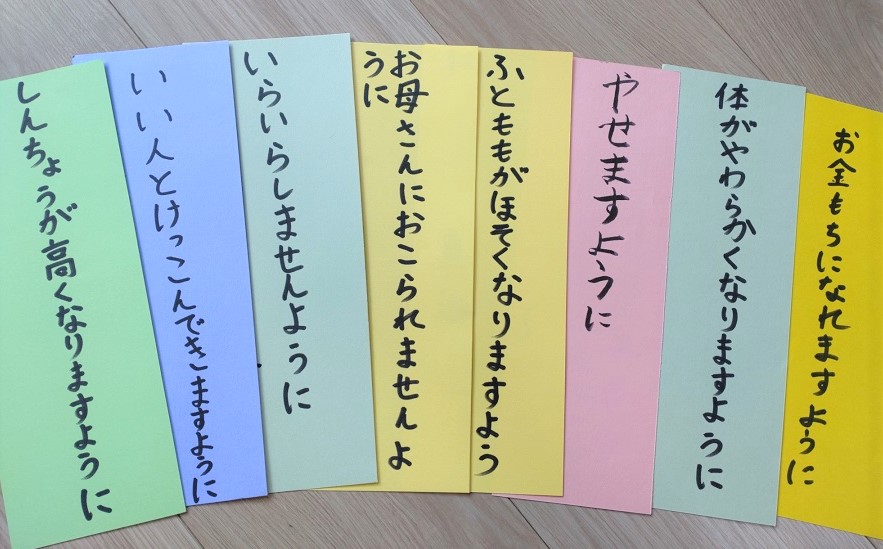 お金もちになれますように
体がやわらかくなりますように
やせますように
ふとももがほそくなりますよう
お母さんにおこられませんよ
うに
いらいらしませんように
いい人とけっこんできますように
しんちょうが高くなりますように